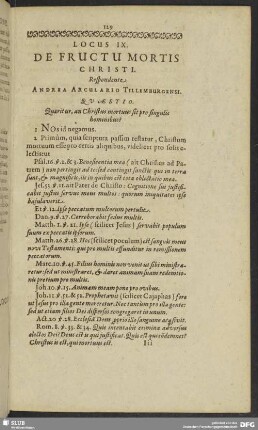 129
LOCUS IX.
DE FRUCTU MORTIS
CHRISTI.
Respondente
ANDREA ARCULARIO TILLEMBURGENSI.
QUÆSTIO.
Quæritur, an Christus mortuus sit pro singulis
hominibus?
1 NOs id negamus.
2 Primùm, quia scriptura passim testatur, Christum
mortuum esse pro certis aliquibus, videlicet pro solis e-
lectis:ut
Psal. 16. ℣. 2. & 3. Beneficentia mea (ait Christus ad Pa-
trem) non pertingit ad te: sed contingit sanctis qui in terra
sunt, & magnificis, in quibus est tota oblectatio mea.
Jes. 53. ℣. 11. ait Pater de Christo: Cognitione sui justifi-
cabit justus servus meus multos: quorum iniquitates ipse
bajulaverit.
Et ℣. 12. Ipse peccatum multorum portasse.
Dan. 9. ℣. 27. Corroborabit fœdus multis.
Matth. 1. ℣. 21. Ipse (scilicet Jesus) servabit populum
suum ex peccatis ipsorum.
Matth. 26. ℣. 28. Hoc (scilicet poculum) est sanguis meus
novi Testamenti: qui pro multis effunditur in remissionem
peccatorum.
Marc. 10. ℣. 45. Filius hominis non venit ut sibi ministra-
retur: sed ut ministraret, & daret animam suam redemtio-
nis pretium pro multis.
Joh. 10. ℣. 15. Animam meam pono pro ovibus.
Joh. 11. ℣. 51. & 52. Prophetavit (scilicet Cajaphas) fore
ut Jesus pro illa gente moreretur. Nec tantùm pro illa gente:
sed ut etiam filios Dei dispersos congregaret in unum.
Act. 20. ℣. 28. Ecclesia Dei proprio illo sanguine acquisivit.
Rom. 8. ℣. 33. & 34. Quis intentabit crimina adversus
electos Dei? Deus est is qui justificat. Quis est qui condemnet?
Christus is est, qui mortuus est.
Iii
SLUB
DFG